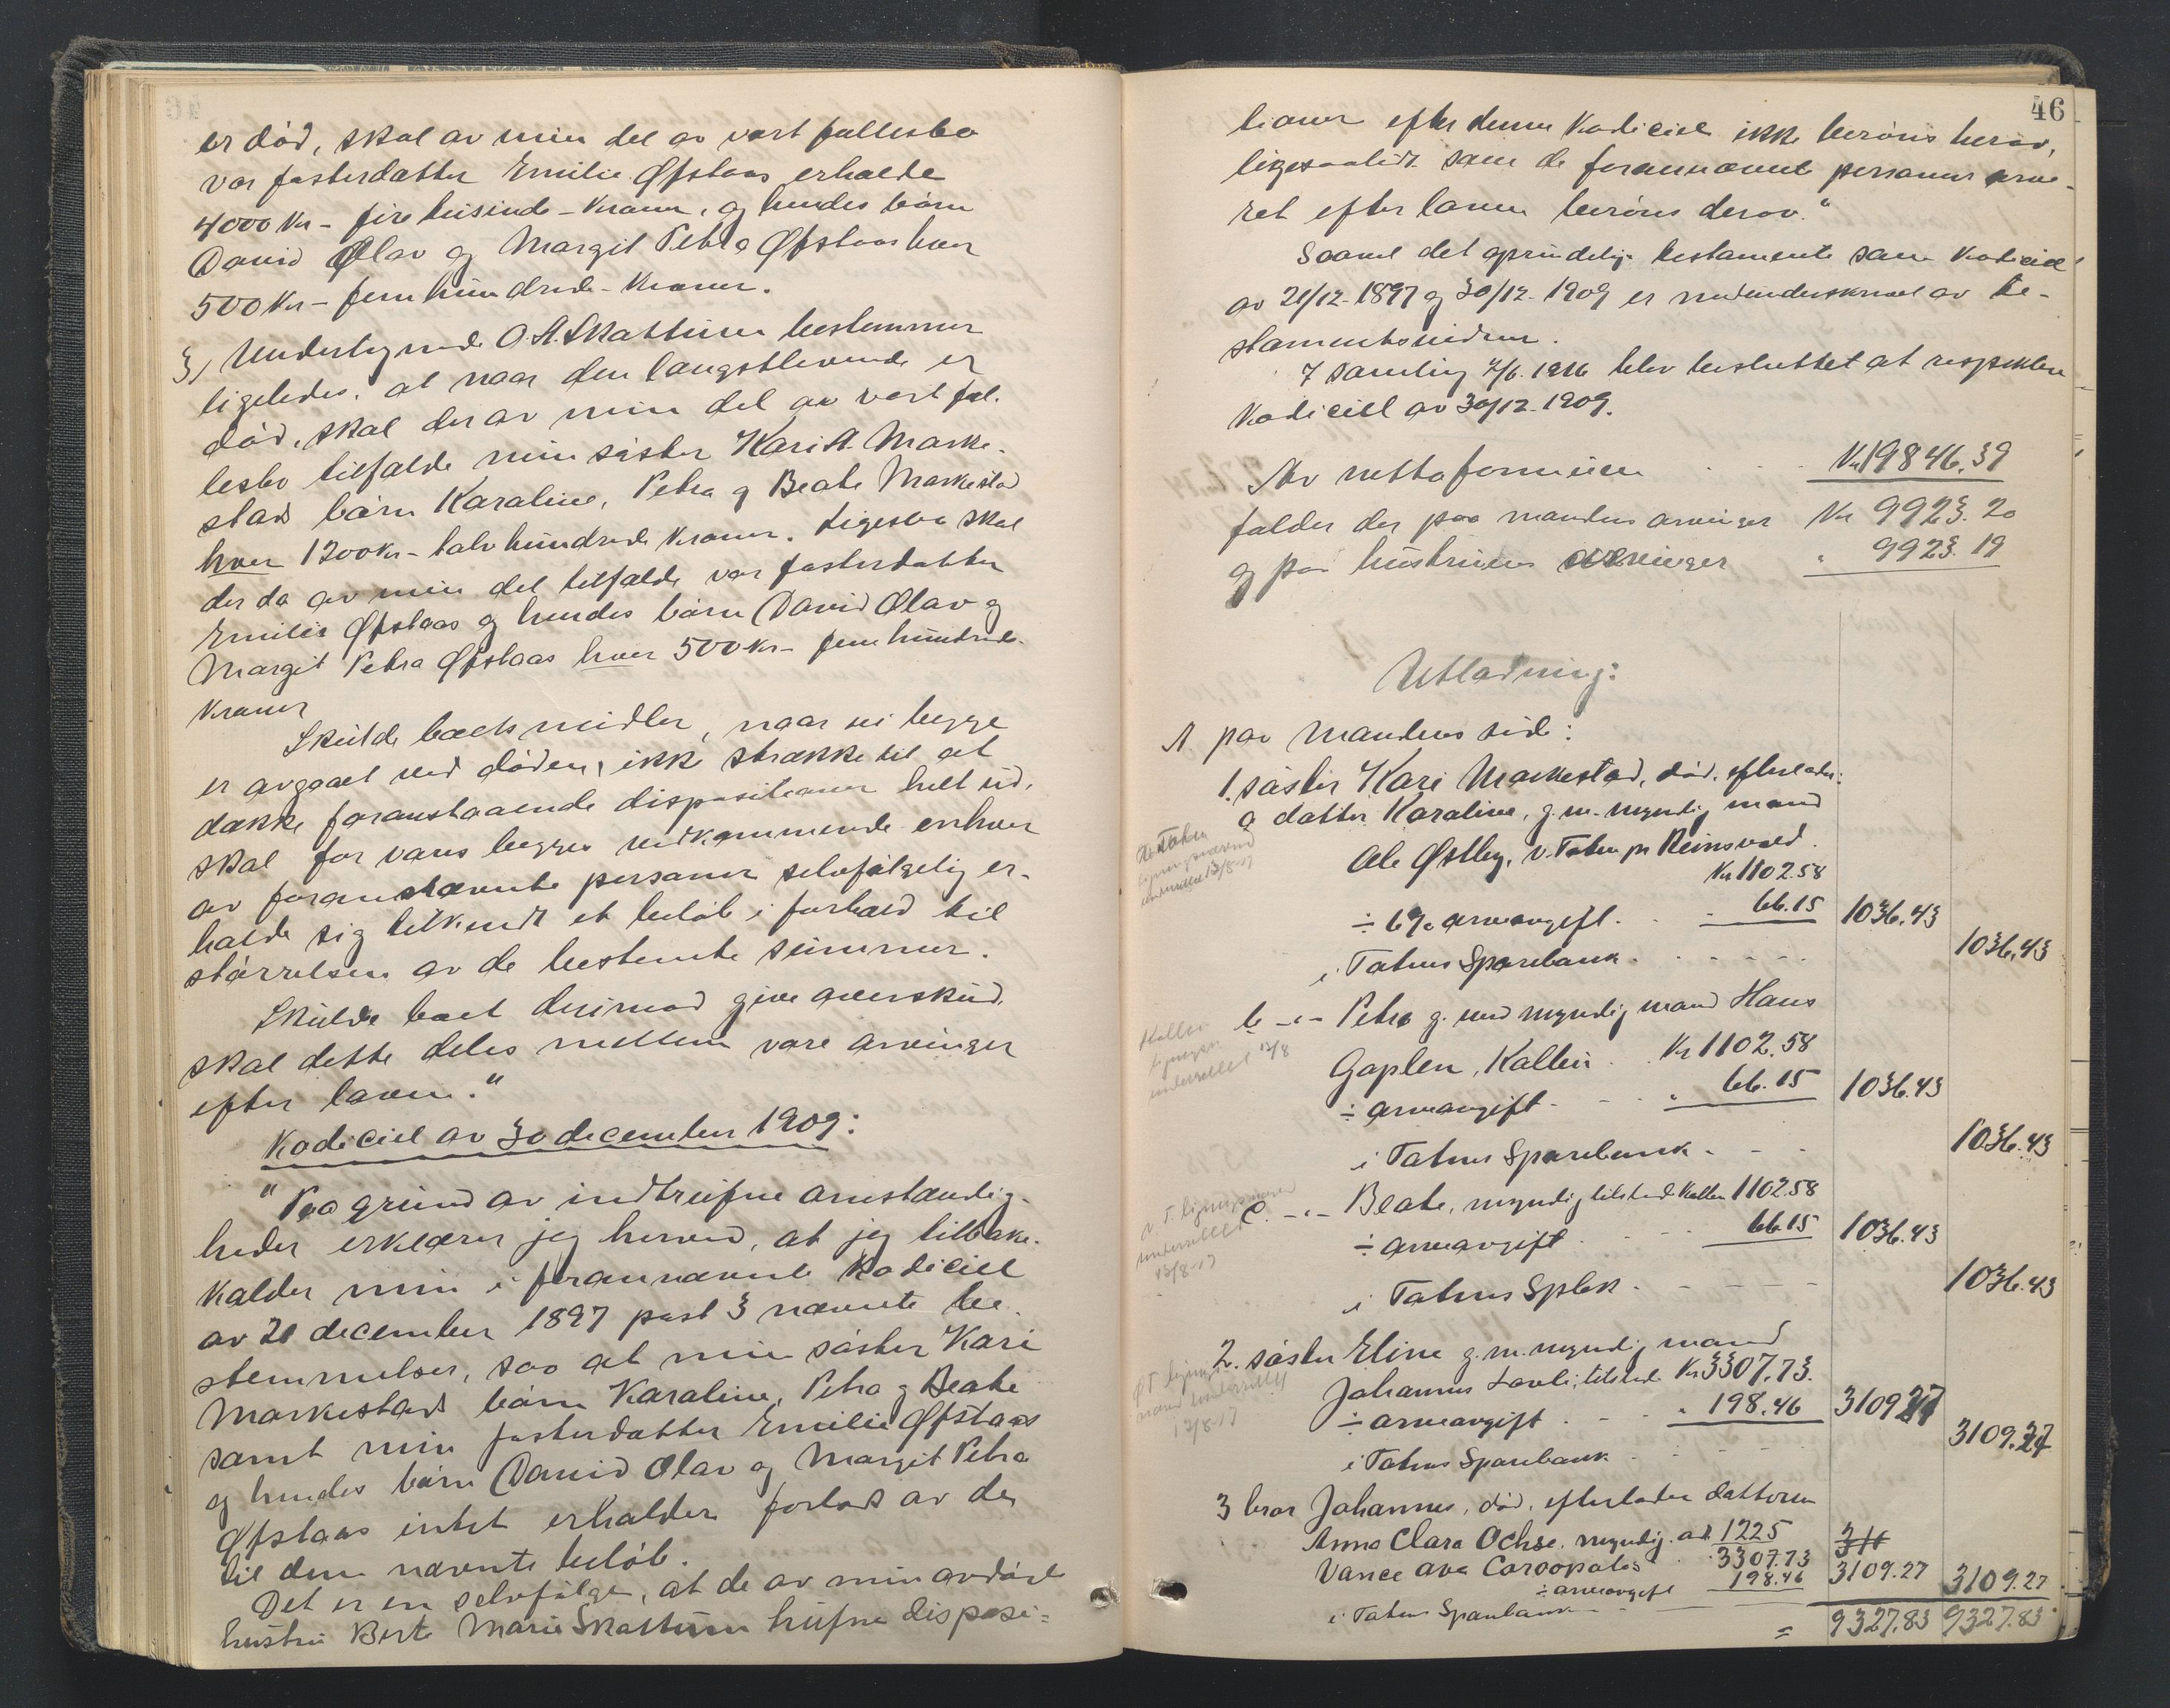 er död, skal av min del av vort fællesbo
vor fosterdatter Emilie Øfstaas erholde
4000 Kr - fire tusinde - Kroner, og hendes börn
David Olav og Margit Petra Øfstaas hver
500 Kr - fem hundrede - Kroner.
3) Undertegnede O. A. Skattum bestemmer
ligeledes, at naar den længstlevende er
död, skal der av min del av vort fæl-
lesbo tilfalde min söster Kari A. Marke-
stads börn Karaline, Petra og Beate Markestad
hver 1200 Kr - tolv hundrede Kroner. Ligesaa skal
der da av min del tilfalde vor fosterdatter
Emilie Øfstaas og hendes börn David Olav og
Margit Petra Øfstaas hver 500 Kr - fem hundrede
Kroner
Skulde boets midler, naar vi begge
er avgaaet ved döden, ikke strække til at
dække foranstaaende dispositioner helt ud,
skal for vores begges vedkommende enhver
av forannævnte personer selvfölgelig er-
holde sig tilkendt et belöb i forhold til
störrelsen av de bestemte summer.
Skulde boet derimod give overskud,
skal dette deles mellem vore arvinger
efter loven."
Kodicil av 30 december 1909:
"Paa grund av indtrufne omstændig-
heder erklærer jeg herved, at jeg tilbake-
kalder min i forannævnte Kodicil
av 21 december 1897 post 3 nævnte be-
stemmelser, saa at min söster Kari
Markestads börn Karaline, Petra og Beate
samt min fosterdatter Emilie Øfstaas
og hendes börn David Olav og Margit Petra
Øfstaas intet erholder forlods av de
til dem nævnte belöb.
Det er en selvfölge, at de av min avdöde
hustru Berte Marie Skattum trufne disposi=
46
tioner efter denne Kodicil ikke beröres herav,
ligesaalidt som de forannævnte personers arve-
ret efter loven beröres derav."
Saavel det oprindelige testamente som Kodicil
av 21/12-1897 og 30/12-1909 er medunderskrevet av te-
stamentsvidner.
I samling 7/6.1916 blev besluttet at respektere
Kodicill av 30/12-1909.
Av nettoformuen Kr 19846.39
falder der paa mandens arvinger Kr 9923.20
og paa hustruens arvinger " 9923.19
Utlodning:
A. paa mandens side:
1. söster Kari Markestad, död, efterlader:
a datter Karaline, g. m. myndig mand
Ole Østby, v. Toten pr Reinsvold.
Kr 1102.58
÷ 6% arveavgift. 66.15 1036.43
i Totens Sparebank. 1036.43
b -"- Petra g. med myndig mand Hans
Gaplen, Kolbu. Kr 1102.58
÷ arveavgift - " 66.15 1036.43
i Totens Sparebank - 1036.43
c. -"- Beate, myndig, tilsted Kolbu 1102.58
÷ arveavgift 66.15 1036.43
i Totens Spbk. 1036.43
2. söster Eline g. m. myndig mand
Johannes, tilsted Kr 3307.73.
÷ arveavgift " 198.46 3109.27
i Totens Sparebank 3109.27
3 bror Johannes, död, efterlader datteren
Anna Clara Ochse, myndig. ad. 1225
Vance Ave Coroopolis 3307.73
÷ arveavgift 198.46 3109.27 3109.27
i Totens Sparebank
= 9327.83 9327.83